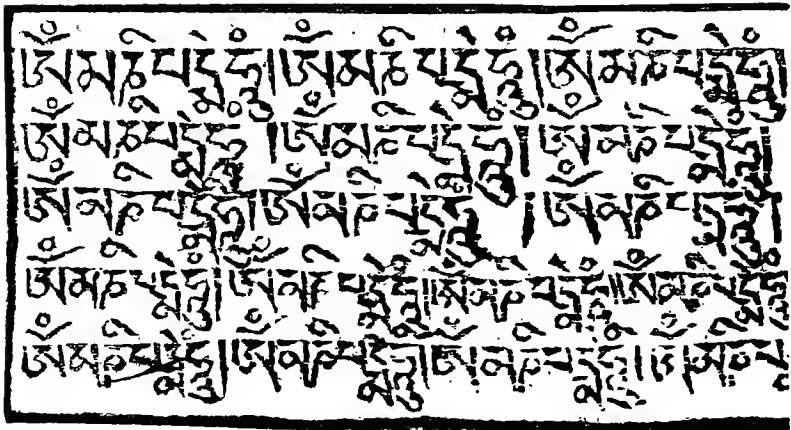 ཨོཾམཎིཔདྨེཧུཾ།ཨོཾམཎིཔདྨེཧུཾ།ཨོཾམཎིཔདྨེཧུཾ།
ཨོཾམཎིཔདྨེཧུཾ།ཨོཾམཎིཔདྨེཧུཾ།ཨོཾམཎིཔདྨེཧུཾ།
ཨོཾམཎིཔདྨེཧུཾ།ཨོཾམཎིཔདྨེཧུཾ།ཨོཾམཎིཔདྨེཧུཾ།
ཨོཾམཎིཔདྨེཧུཾ།ཨོཾམཎིཔདྨེཧུཾ།།ཨོཾམཎིཔདྨེཧུཾ།།ཨོཾམཎིཔདྨེཧུཾ
ཨོཾམཎིཔདྨེཧུཾ།ཨོཾམཎིཔདྨེཧུཾ།ཨོཾམཎིཔདྨེཧུཾ།ཨོཾམཎིཔ